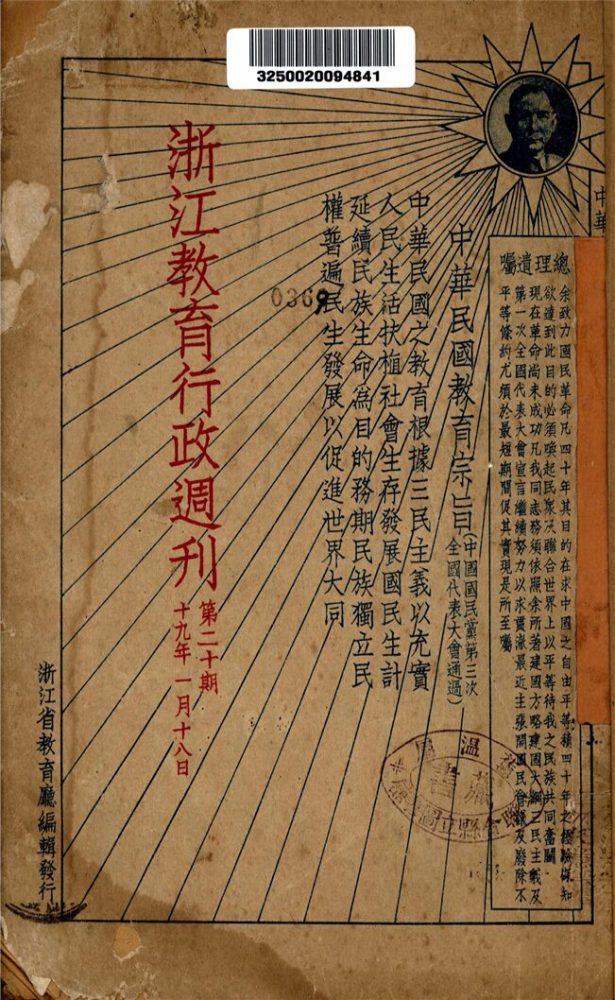 3250020094841
中華
總理遺囑
余致力國民革命凡四十年其目的在求中國之自由平等積四十年之經驗深知
欲達到此目的必須喚起民眾及聯合世界上以平等待我之民族共同奮鬬
現在革命尚未成功凡我同志務須依照余所著建國方略建國大綱三民主義及
第一次全國代表大會宣言繼續努力以求貫澈最近主張開國民會議及廢除不
平等條約尤須於最短期間促其實現是所至囑
中華民國教育宗旨(中國國民黨第三次全國代表大會通過)
中華民國之教育根據三民主義以充實
人民生活扶植社會生存發展國民生計
延續民族生命為目的務期民族獨立民
權普遍民生發展以促進世界大同
0369
浙江教育行政週刊
第二十期
十九年一月十八日
浙江省教育廳編輯發行